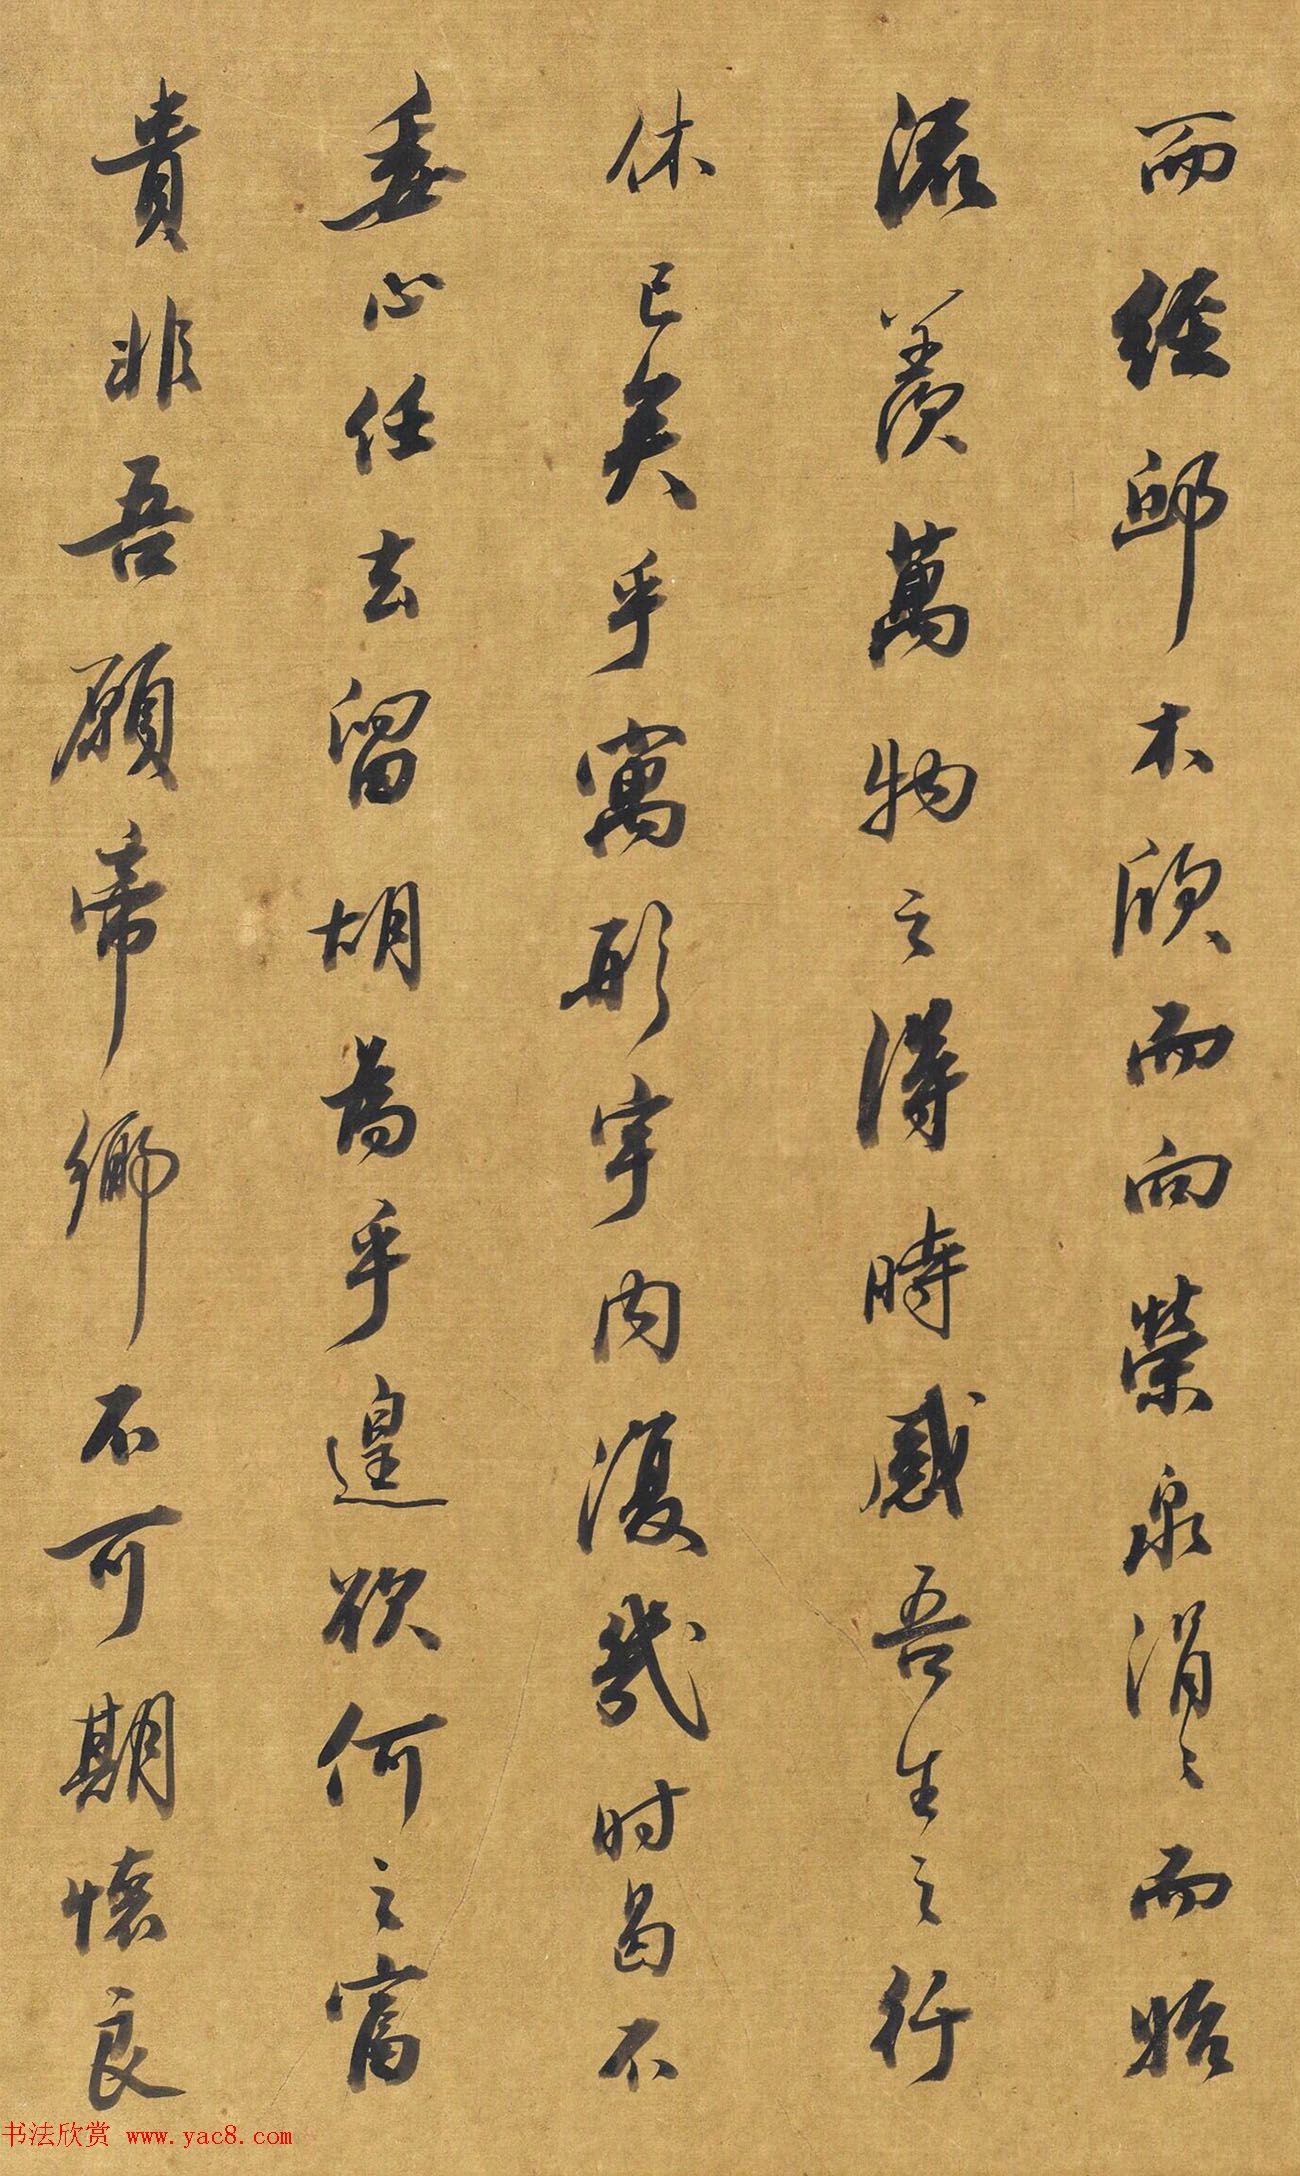 而經邱木欣而向榮泉涓〻而始
流羨萬物之得時感吾生之行
休已矣乎寓形宇內復幾时曷不
委心任去留胡為乎遑欲何之富
貴非吾願帝鄉不可期懷良
书法欣赏 www.yac8.com